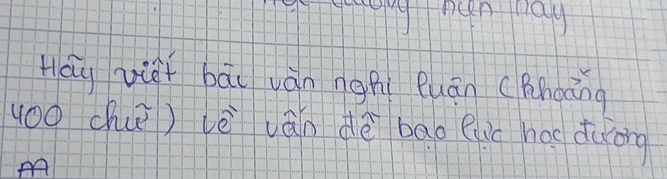 nay
Hãy viết bài văn nghị luận (khoảng
400 chữ) về vấn đề bạo lực học đường